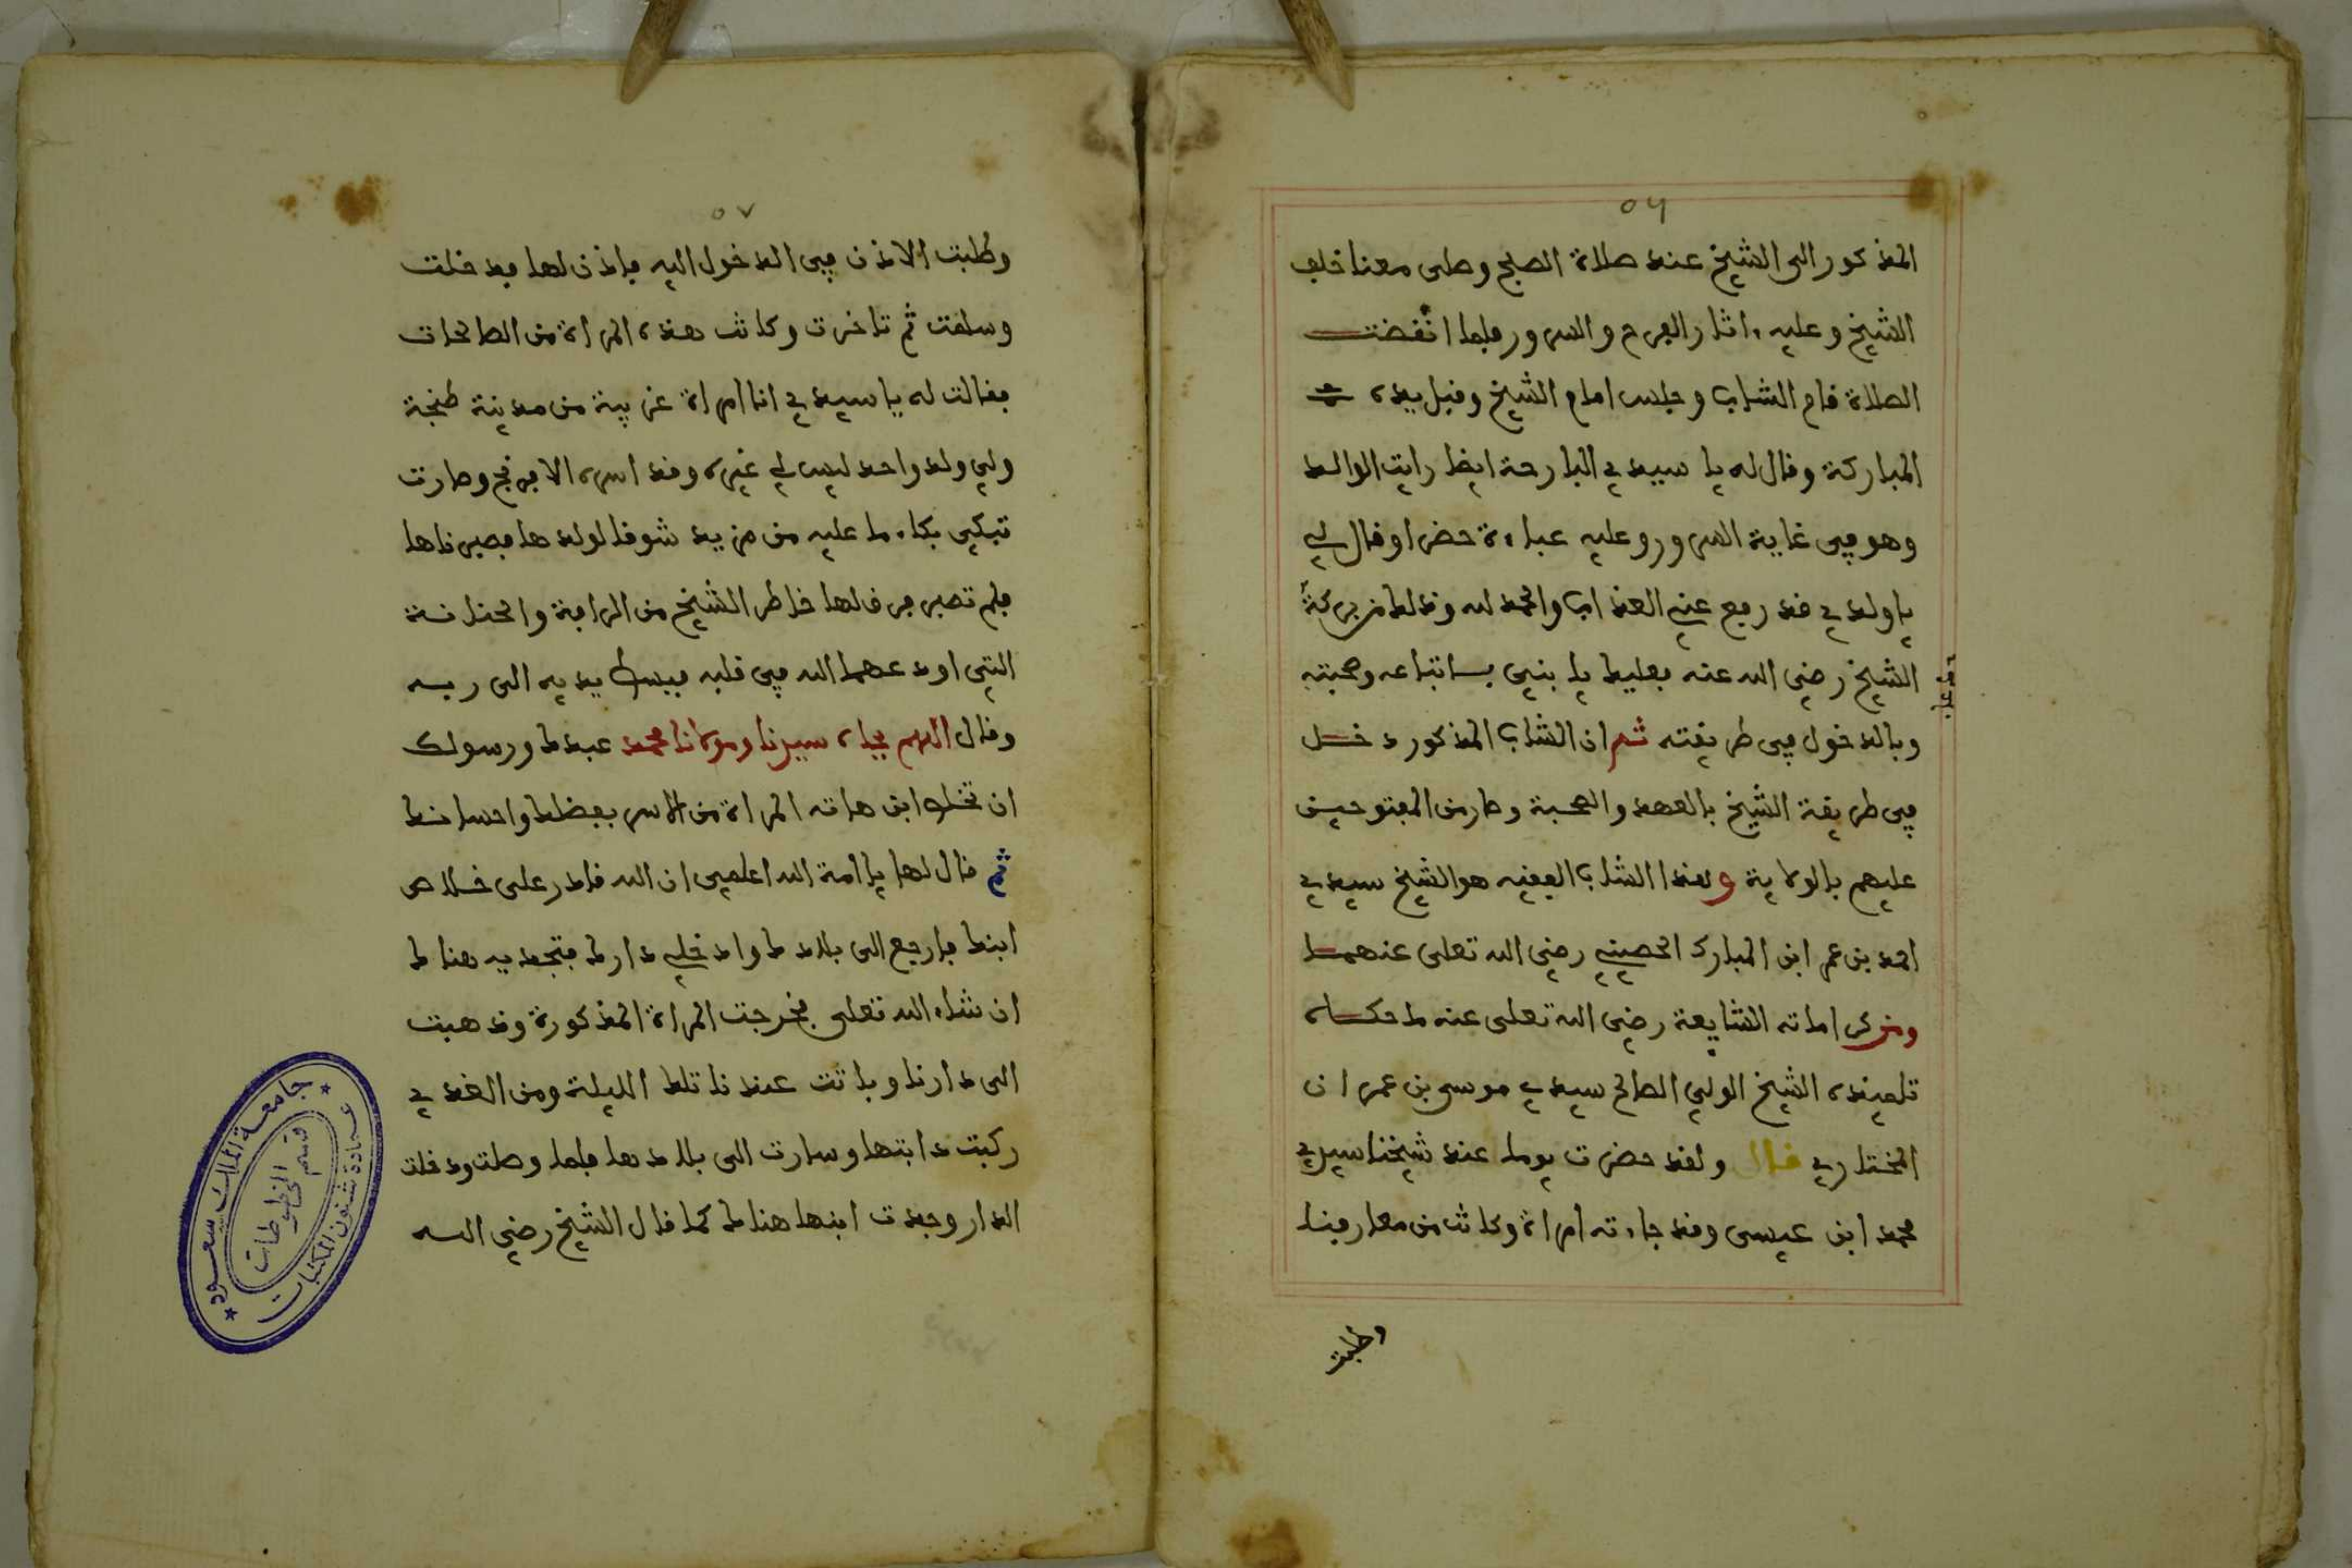 ٥٦
المذكور الى الشيخ عند صلاة الصبح وصلى معنا خلف
الشيخ وعليه ءاثار الفرح والسرور فلما انقضت
الصلاة قام الشاب وجلس امام الشيخ وقبل يده
المباركة وقال له يا سيدي البارحة ايضا رايت الوالد
وهو في غاية السرور وعليه عباءة خضرا وقال لي
يا ولدي قد رفع عني العذاب والحمد لله وذلك من بركة
الشيخ رضي الله عنه فعليك يا بني باتباعه وصحبته
وبالدخول في طريقته ثم ان الشاب المذكور دخل
في طريقة الشيخ بالعهد والصحبة وصار من المفتوحين
عليهم بالولاية وهذا الشاب الفقيه هو الشيخ سيدي
احمد بن عمر ابن المبارك الحصيني رضي الله تعلى عنهما
ومن كراماته الشايعة رضي الله تعلى عنه ما حكاه
تلميذه الشيخ الولي الصالح سيدي موسى بن عمران
المختاري قال ولقد حضرت يوما عند شيخنا سيدي
محمد ابن عيسى وقد جاءته امراة وكانت من معارفنا
وطلبت
٥٧
وطلبت الاذن في الدخول اليه فاذن لها فدخلت
وسلمت ثم تاخرت وكانت هذه المراة من الصالحات
فقالت له يا سيدي انا امراة غريبة من مدينة طنجة
ولي ولد واحد ليس لي غيره وقد اسره الافرنج وصارت
تبكي بكاء ما عليه من مزيد شوقا لولدها فصبرناها
فلم تصبر فرق لها خاطر الشيخ من الرافة والحنانة
التي اودعهما الله في قلبه فبسط يديه الى ربه
وقال اللهم بجاه سيدنا ومولانا محمد عبدك ورسولك
ان تخلص ابن هاته المراة من الاسر بفضلك واحسانك
ثم قال لها يا امة الله اعلمي ان الله قادر على خلاص
ابنك فارجع الى بلادك وادخلي دارك فتجديه هناك
ان شاء الله تعلى فخرجت المراة المذكورة وذهبت
الى دارنا وباتت عندنا تلك الليلة ومن الغدي
ركبت دابتها وسارت الى بلادها فلما وصلت ودخلت
الدار وجدت ابنها هناك كما قال الشيخ رضي الله
جامعة الملك سعود
قسم المخطوطات
عمادة شئون المكتبات